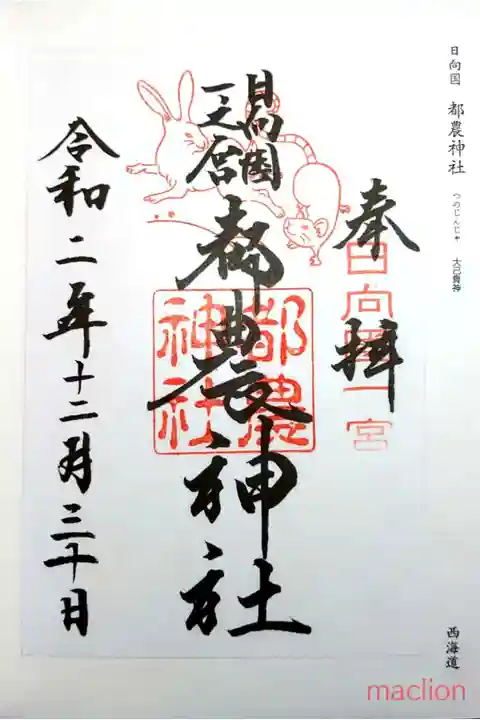 日向国 都農神社 つのじんじゃ 大己貴神
奉拝
日向国一宮
日向国
一之宮
都農神社
都農
神社
令和二年十二月三十日
西海道
maclion